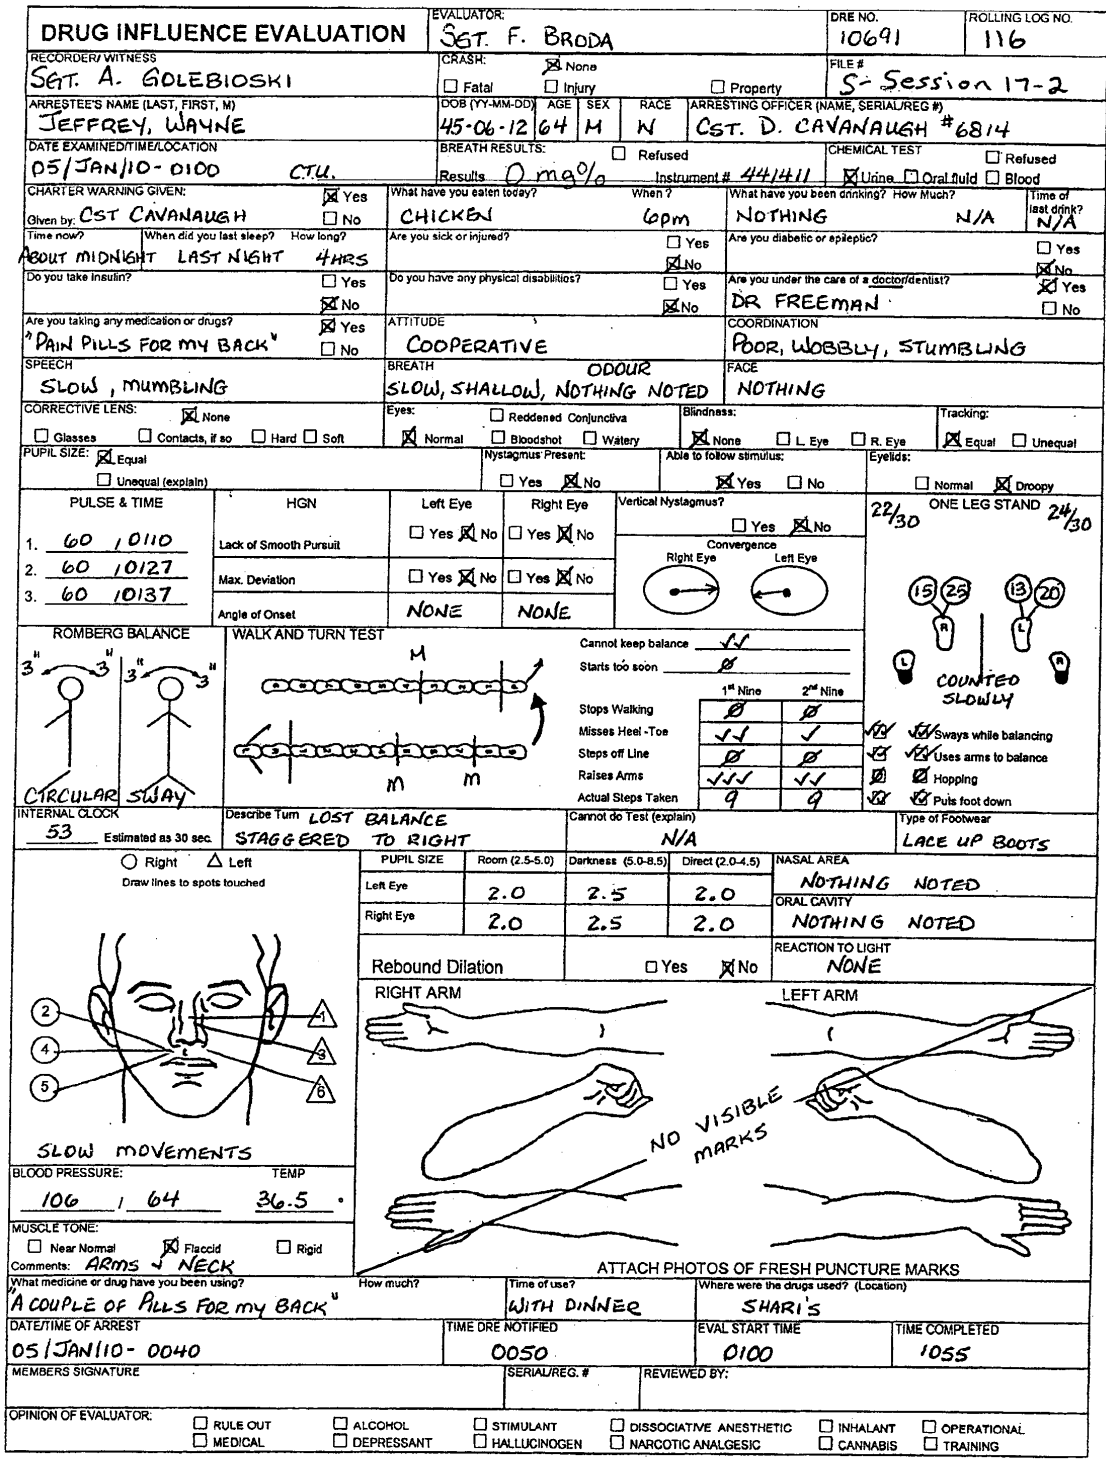 DRUG INFLUENCE EVALUATION
EVALUATOR:
SGT. F. BRODA
DRE NO.
10691
ROLLING LOG NO.
116
RECORDER/ WITNESS
SGT. A. GOLEBIOSKI
CRASH:
None
Fatal Injury Property
FILE #
S-Session 17-2
ARRESTEE'S NAME (LAST, FIRST, M)
JEFFREY, WAYNE
DOB (YY-MM-DD)
45-06-12
AGE
64
SEX
M
RACE
W
ARRESTING OFFICER (NAME, SERIAL/REG #)
CST. D. CAVANAUGH #6814
DATE EXAMINED/TIME/LOCATION
05/JAN/10-0100 CTU.
BREATH RESULTS: Refused
Results 0 mg% Instrument # 441411
CHEMICAL TEST Refused
Urine Oral fluid Blood
CHARTER WARNING GIVEN: Yes
Given by: CST CAVANAUGH No
What have you eaten today? When ?
CHICKEN 6pm
What have you been drinking? How Much?
NOTHING N/A
Time of last drink?
N/A
Time now? When did you last sleep? How long?
ABOUT MIDNIGHT LAST NIGHT 4HRS
Are you sick or injured? Yes
No
Are you diabetic or epileptic? Yes
No
Do you take insulin? Yes
No
Do you have any physical disabilities? Yes
No
Are you under the care of a doctor/dentist? Yes
DR FREEMAN No
Are you taking any medication or drugs? Yes
"PAIN PILLS FOR MY BACK" No
ATTITUDE
COOPERATIVE
COORDINATION
POOR, WOBBLY, STUMBLING
SPEECH
SLOW, MUMBLING
BREATH ODOUR
SLOW, SHALLOW, NOTHING NOTED
FACE
NOTHING
CORRECTIVE LENS: None
Glasses Contacts, if so Hard Soft
Eyes: Reddened Conjunctiva
Normal Bloodshot Watery
Blindness:
None L. Eye R. Eye
Tracking:
Equal Unequal
PUPIL SIZE: Equal
Unequal (explain)
Nystagmus Present:
Yes No
Able to follow stimulus:
Yes No
Eyelids:
Normal Droopy
PULSE & TIME
1. 60 / 0110
2. 60 / 0127
3. 60 / 0137
HGN Left Eye Right Eye
Lack of Smooth Pursuit Yes No Yes No
Max. Deviation Yes No Yes No
Angle of Onset NONE NONE
Vertical Nystagmus?
Yes No
Convergence
Right Eye Left Eye
22/30 ONE LEG STAND 24/30
15 25 13 20
R L
L R
COUNTED
SLOWLY
Sways while balancing
Uses arms to balance
Hopping
Puts foot down
ROMBERG BALANCE
3" 3" 3" 3"
CIRCULAR SWAY
WALK AND TURN TEST
M
M M
Cannot keep balance ✓✓
Starts too soon Ø
1st Nine 2nd Nine
Stops Walking Ø Ø
Misses Heel -Toe ✓✓ ✓
Steps off Line Ø Ø
Raises Arms ✓✓✓ ✓✓
Actual Steps Taken 9 9
INTERNAL CLOCK
53 Estimated as 30 sec.
Describe Turn LOST BALANCE
STAGGERED TO RIGHT
Cannot do Test (explain)
N/A
Type of Footwear
LACE UP BOOTS
Right Left
Draw lines to spots touched
2 1
4 3
5 6
SLOW MOVEMENTS
PUPIL SIZE Room (2.5-5.0) Darkness (5.0-8.5) Direct (2.0-4.5)
Left Eye 2.0 2.5 2.0
Right Eye 2.0 2.5 2.0
Rebound Dilation Yes No
NASAL AREA
NOTHING NOTED
ORAL CAVITY
NOTHING NOTED
REACTION TO LIGHT
NONE
RIGHT ARM LEFT ARM
NO VISIBLE
MARKS
ATTACH PHOTOS OF FRESH PUNCTURE MARKS
BLOOD PRESSURE: TEMP
106 / 64 36.5 °
MUSCLE TONE:
Near Normal Flaccid Rigid
Comments: ARMS & NECK
What medicine or drug have you been using? How much?
"A COUPLE OF PILLS FOR MY BACK"
Time of use?
WITH DINNER
Where were the drugs used? (Location)
SHARI'S
DATE/TIME OF ARREST
05/JAN/10-0040
TIME DRE NOTIFIED
0050
EVAL START TIME
0100
TIME COMPLETED
1055
MEMBERS SIGNATURE
SERIAL/REG. #
REVIEWED BY:
OPINION OF EVALUATOR:
RULE OUT ALCOHOL STIMULANT DISSOCIATIVE ANESTHETIC INHALANT OPERATIONAL
MEDICAL DEPRESSANT HALLUCINOGEN NARCOTIC ANALGESIC CANNABIS TRAINING